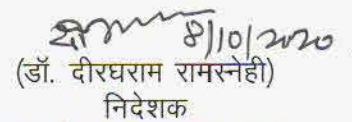 8/10/2020
(डॉ. दीरघराम रामस्नेही)
निदेशक